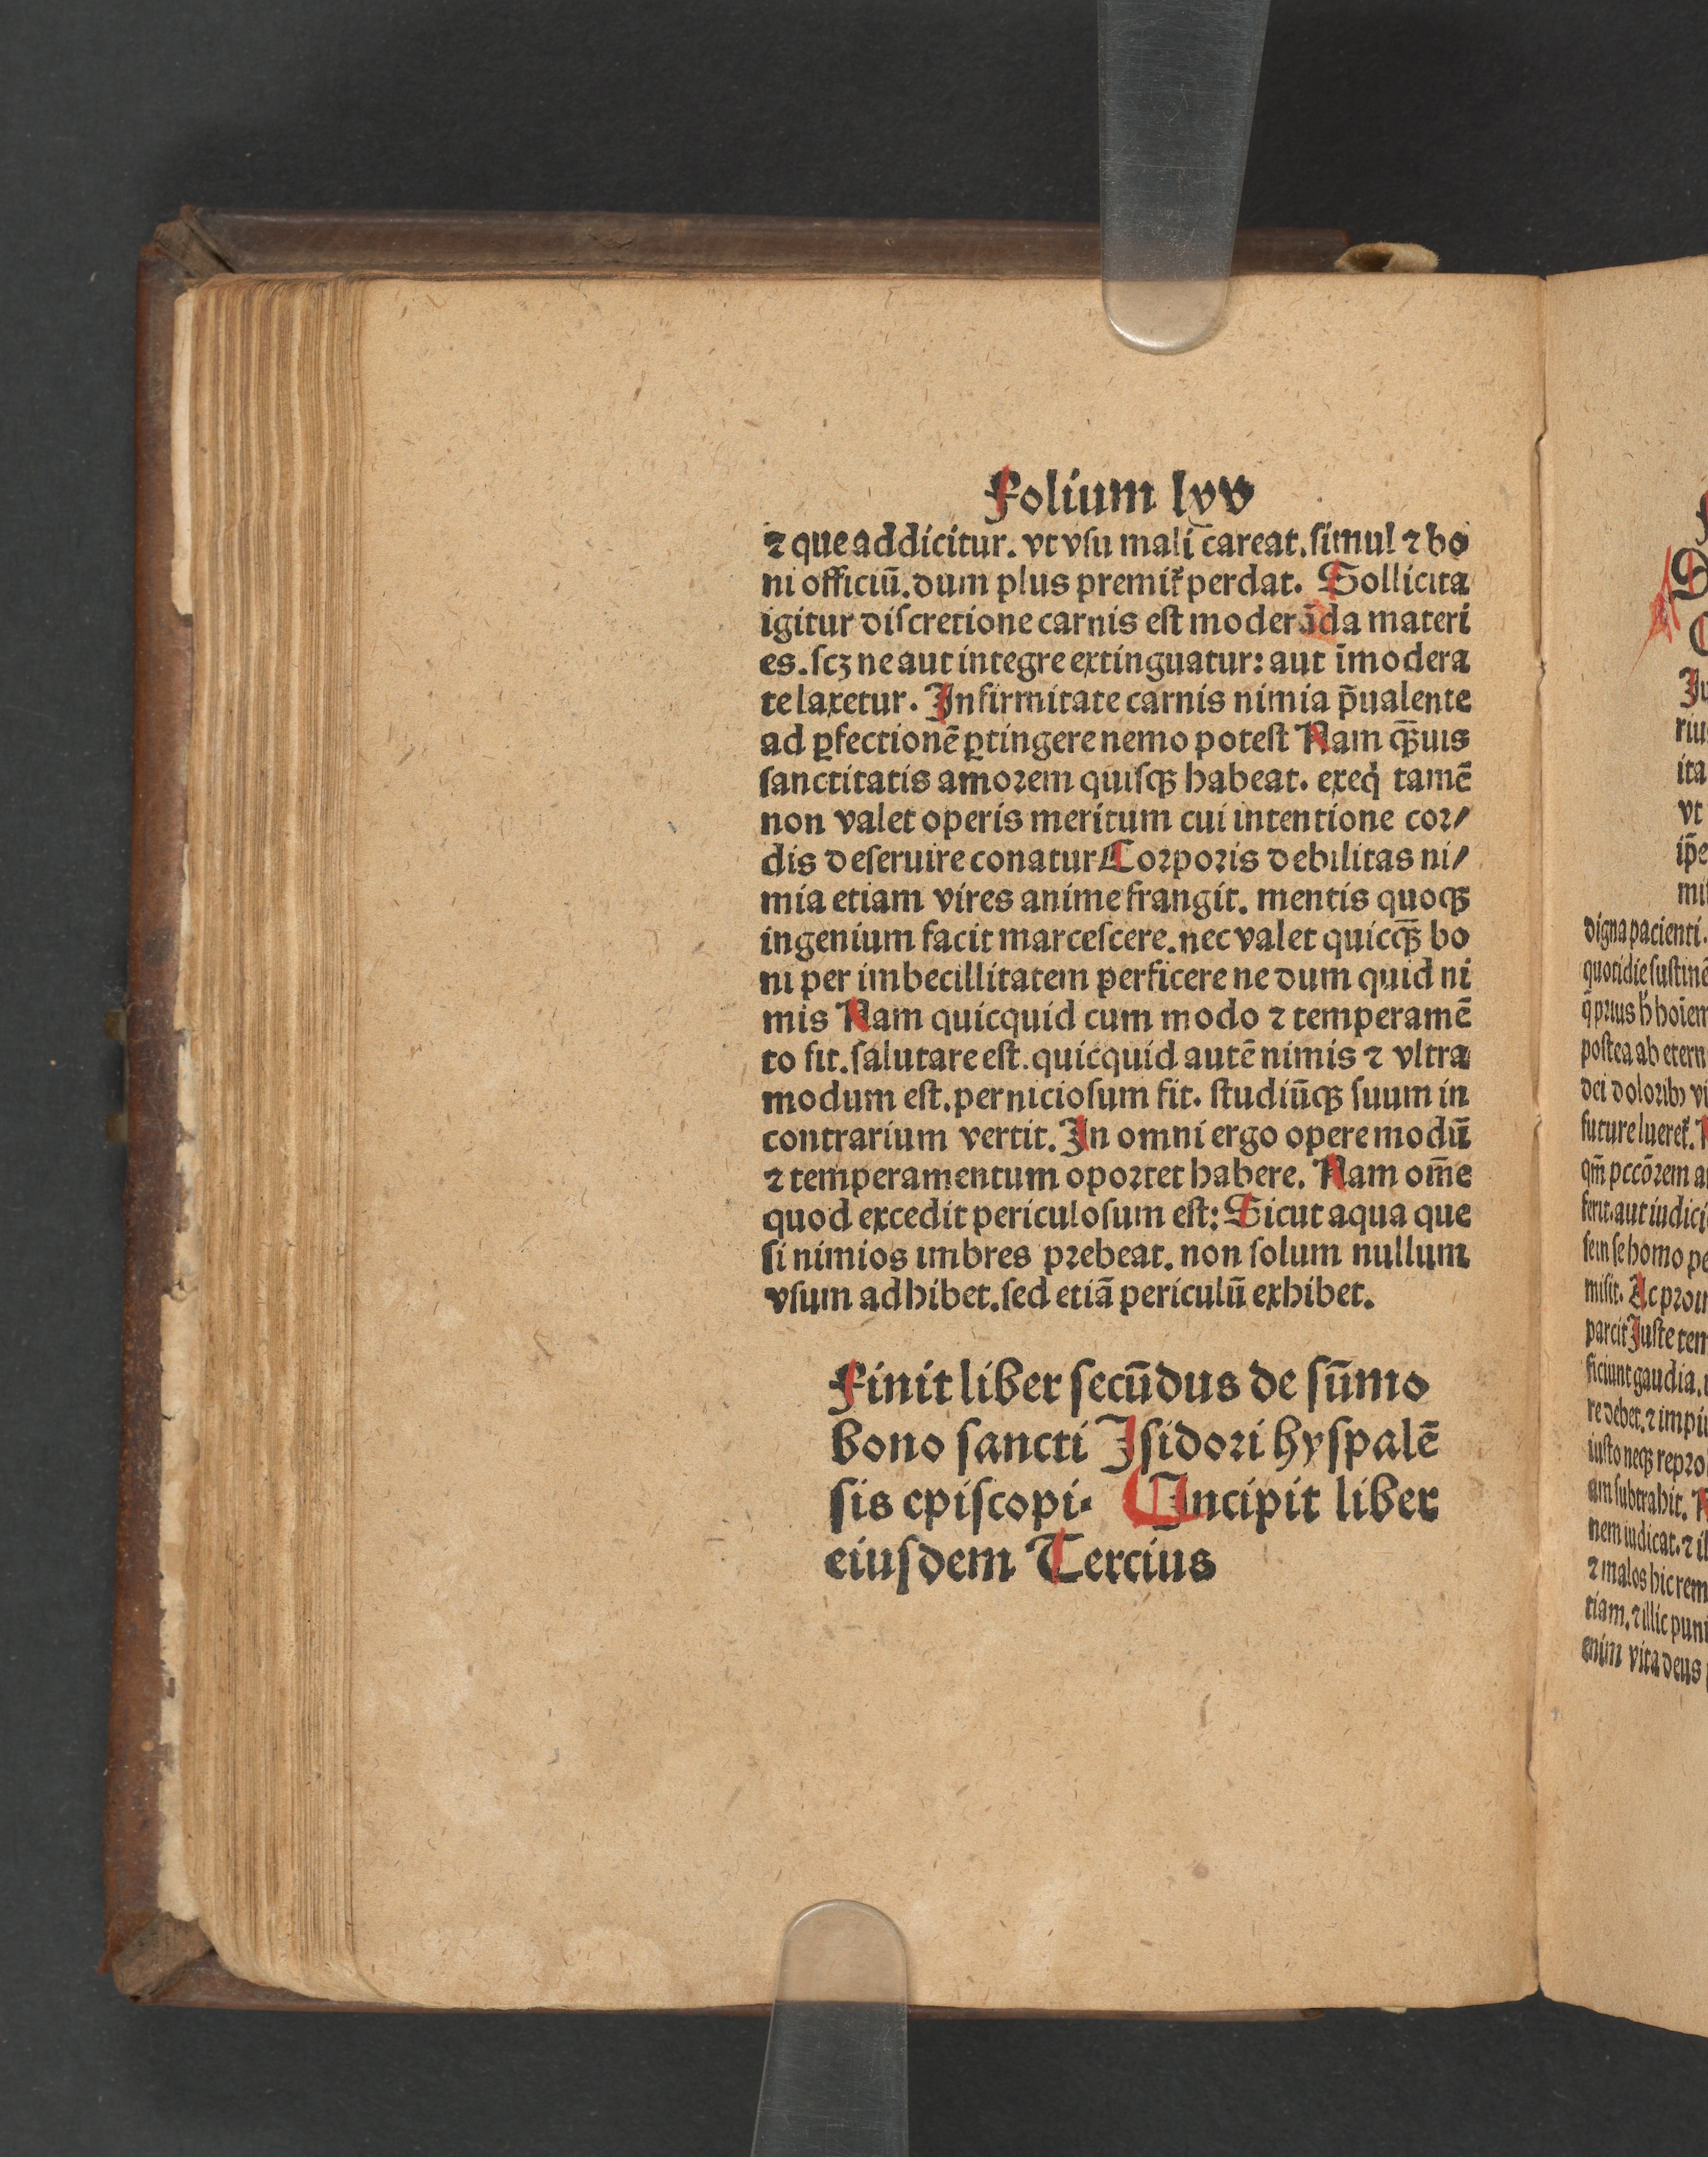 Folium lxv
⁊ que addicitur. vt vsu mali careat. simul ⁊ bo
ni officiū. dum plus premit᷑ perdat. Sollicita
igitur discretione carnis est moderāda materi
es. scꝫ ne aut integre extinguatur: aut īmodera
te laxetur. Infirmitate carnis nimia p̄ualente
ad ꝑfectionē ꝑtingere nemo potest Nam qꝫ̄uis
sanctitatis amorem quisqꝫ habeat. exeq̇ tamē
non valet operis meritum cui intentione cor/
dis deseruire conatur Corporis debilitas ni/
mia etiam vires anime frangit. mentis quoqꝫ
ingenium facit marcescere. nec valet quicqꝫ̄ bo
ni per imbecillitatem perficere ne dum quid ni
mis Nam quicquid cum modo ⁊ temperamē
to fit. salutare est. quicquid autē nimis ⁊ vltra
modum est. perniciosum fit. studiūqꝫ suum in
contrarium vertit. In omni ergo opere modū
⁊ temperamentum oportet habere. Nam om̄e
quod excedit periculosum est: Sicut aqua que
si nimios imbres prebeat. non solum nullum
vsum adhibet. sed etiā periculū exhibet.
Finit liber secūdus de sūmo
bono sancti Isidori hyspalē
sis episcopi. Incipit liber
eiusdem Tercius
digna pacienti.
quotidie sustinē
postea ab etern
ferit. aut iudici
sem se homo pe
misit. Ac proin
parcit Iuste tem
ficiunt gaudia.
re debet. ⁊ impi
iusto neqꝫ repro
am subtrahit.
nem iudicat. ⁊ il
⁊ malos hic rem
tiam. ⁊ illic puni
enim vita deus